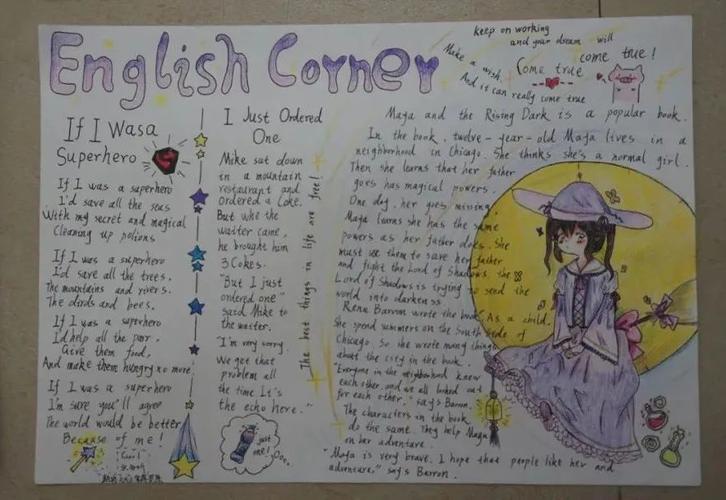 English Corner
keep on working
and your dream will
come true!
Make a wish.
Come true
And it can really come true
If I Was a
Superhero
S
If I was a superhero
I'd save all the seas
With my secret and magical
Cleaning up potions
If I was a superhero
I'd save all the trees.
The mountains and rivers.
The birds and bees.
If I was a superhero
I'd help all the poor.
Give them food,
And make them hungry no more.
If I was a superhero
I'm sure you'll agree
The world would be better
Because of me!
I Just Ordered
One
Mike sat down
in a mountain
restaurant and
ordered a Coke.
But whe the
waiter came,
he brought him
3 Cokes.
"But I just
ordered one"
said Mike to
the waiter.
"I'm very sorry.
We get that
problem all
the time It's
the echo here."
just
one!
The best things in life are free!
Maya and the Rising Dark is a popular book.
In the book, twelve-year-old Maya lives in a
neighborhood in Chicago. She thinks she's a normal girl.
Then she learns that her father
has magical powers.
One day, he goes missing.
Maya learns she has the same
powers as her father does. She
must use them to save her father
and fight the Lord of Shadows. The
Lord of Shadows is trying to send the
world into darkness.
Rena Barron wrote the book. As a child,
She spend summers on the South Side of
Chicago. So she wrote many things
about the city in the book.
"Everyone in the neighborhood knew
each other, and we all looked out
for each other," says Barron.
The characters in the book
do the same. They help Maya
on her adventure.
"Maya is very brave. I hope that people like her and
adventure," says Barron.